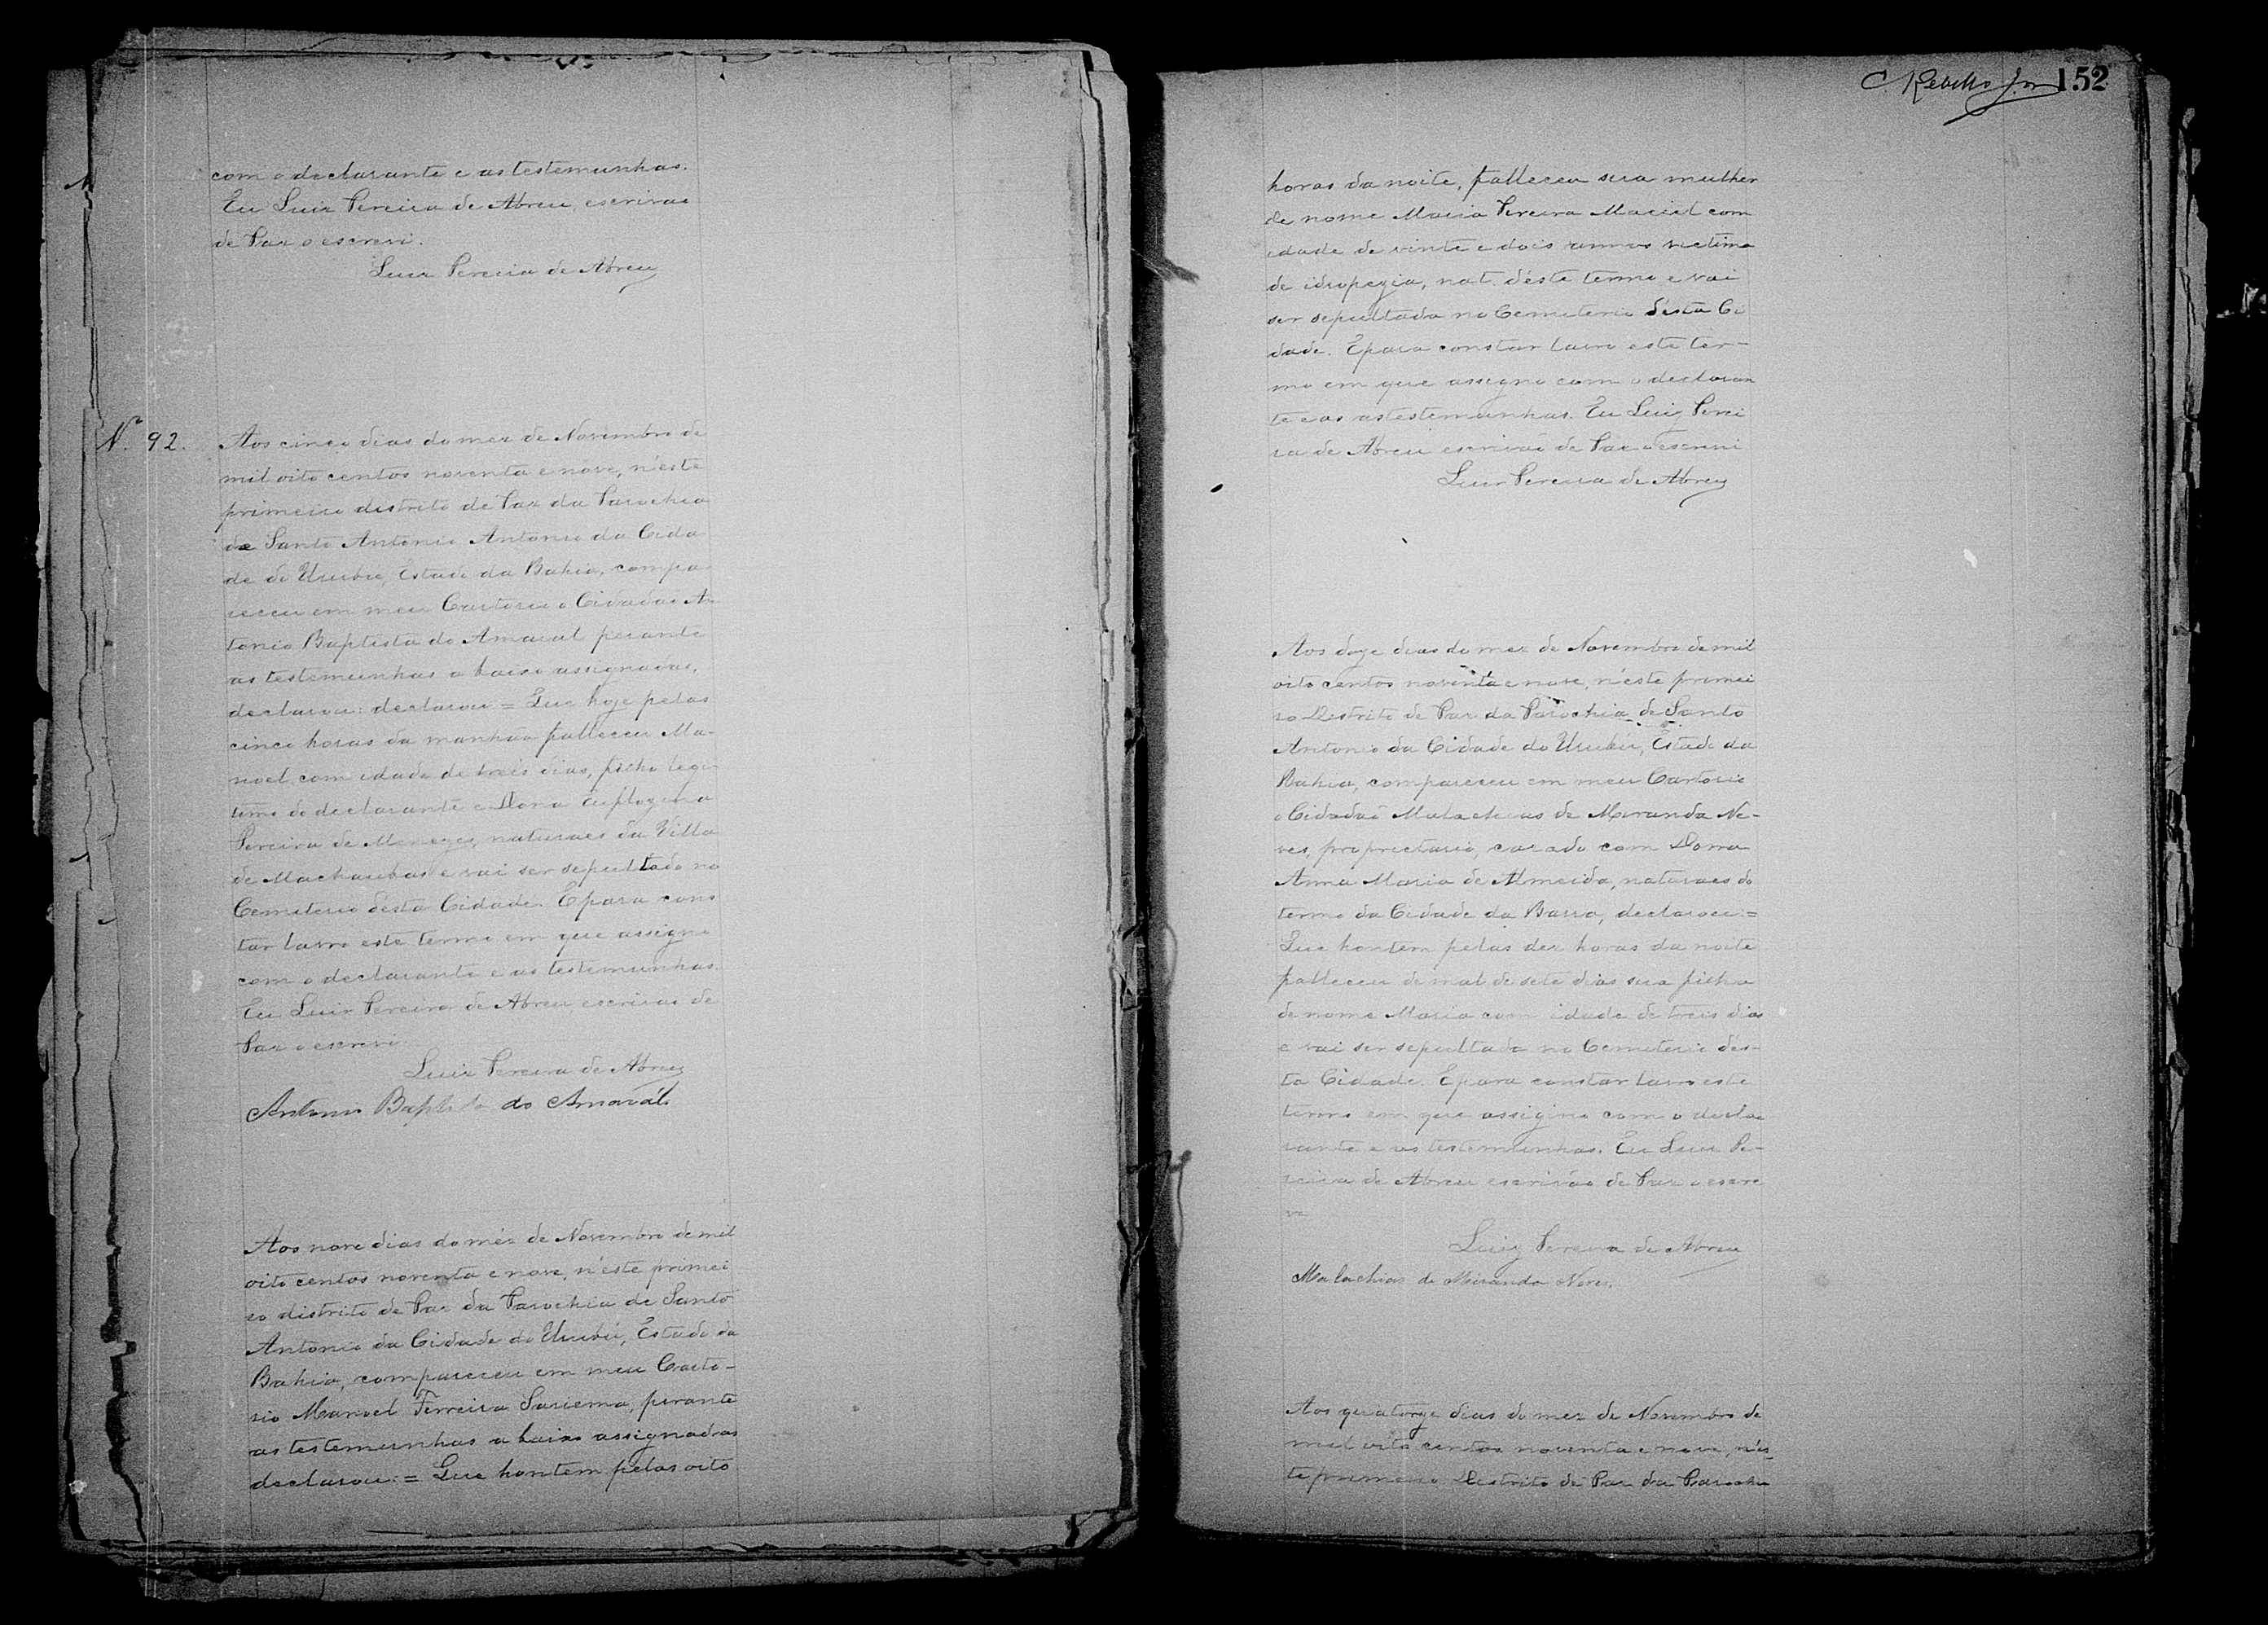 com o declarante e as testemunhas.
Eu Luiz Pereira de Abreu, escrivão
de Paz o escrevi.
Luiz Pereira de Abreu
Nº 92.
Aos cinco dias do mez de Novembro de
mil oito centos noventa e nove, n'este
primeiro distrito de Paz da Parochia
de Santo Antonio Antonio da Cida
de do Urubu, Estado da Bahia, compa
receu em meu Cartorio o Cidadão An
tonio Baptista do Amaral perante
as testemunhas a baixo assignadas,
declarou: declarou = Que hoje pelas
cinco horas da manhãa falleceu Ma-
noel, com idade de treis dias, filho legi
timo do declarante e Dona
Pereira de Menezes, naturaes da Villa
de Machaubas e vai ser sepultado no
Cemiterio désta Cidade. E para cons
tar lavro este termo em que assigno
com o declarante e as testemunhas.
Eu Luiz Pereira de Abreu escrivão de
Paz o escrevi
Luiz Pereira de Abreu
Antonio Baptista do Amarál
Aos nove dias do méz de Novembro de mil
oito centos noventa e nove, n'éste primei
ro distrito de Paz da Parochia de Santo
Antonio da Cidade do Urubú, Estado da
Bahia, compareceu em meu Carto-
rio Manoel Ferreira Sariema, perante
as testemunhas a baixo assignadas
declarou: = Que hontem pelas oito
C. Rebello Jor 152
horas da noite, falleceu sua mulher
de nome Maria Pereira Maciel com
idade de vinte e dois annos victima
de idropezia, nat. déste termo e vai
ser sepultada no Cemiterio désta Ci
dade. E para constar lavro este ter-
mo em que assigno com o declaran
te e as astestemunhas. Eu Luiz Perei
ra de Abreu escrivão de Paz o escrevi
Luiz Pereira de Abreu
Aos doze dias do mez de Novembro de mil
oito centos noventa e nove, n'éste primei
ro Destrito de Paz da Parochia de Santo
Antonio da Cidade do Urubú, Estado da
Bahia, compareceu em meu Cartorio
o Cidadaõ Malachias de Miranda Ne-
ves, proprietario, casado com Dona
Anna Maria de Almeida, naturaes do
termo da Cidade da Barra, declarou: =
Que hontem pelas dez horas da noite
falleceu de mal de sete dias sua filha
de nome Maria com idade de treis dias
e vai ser sepultada no Cemiterio des-
ta Cidade. E para constar lavro este
termo em que assigino com o decla
rante e as testemunhas. Eu Luiz Pe-
reira de Abreu escrivão de Paz o escre
vi
Luiz Pereira de Abreu
Malachias de Miranda Neves.
Aos quatorze dias do mez de Novembro de
mil oito centos noventa e nove, n'és
te primeiro Destrito de Paz da Parochia